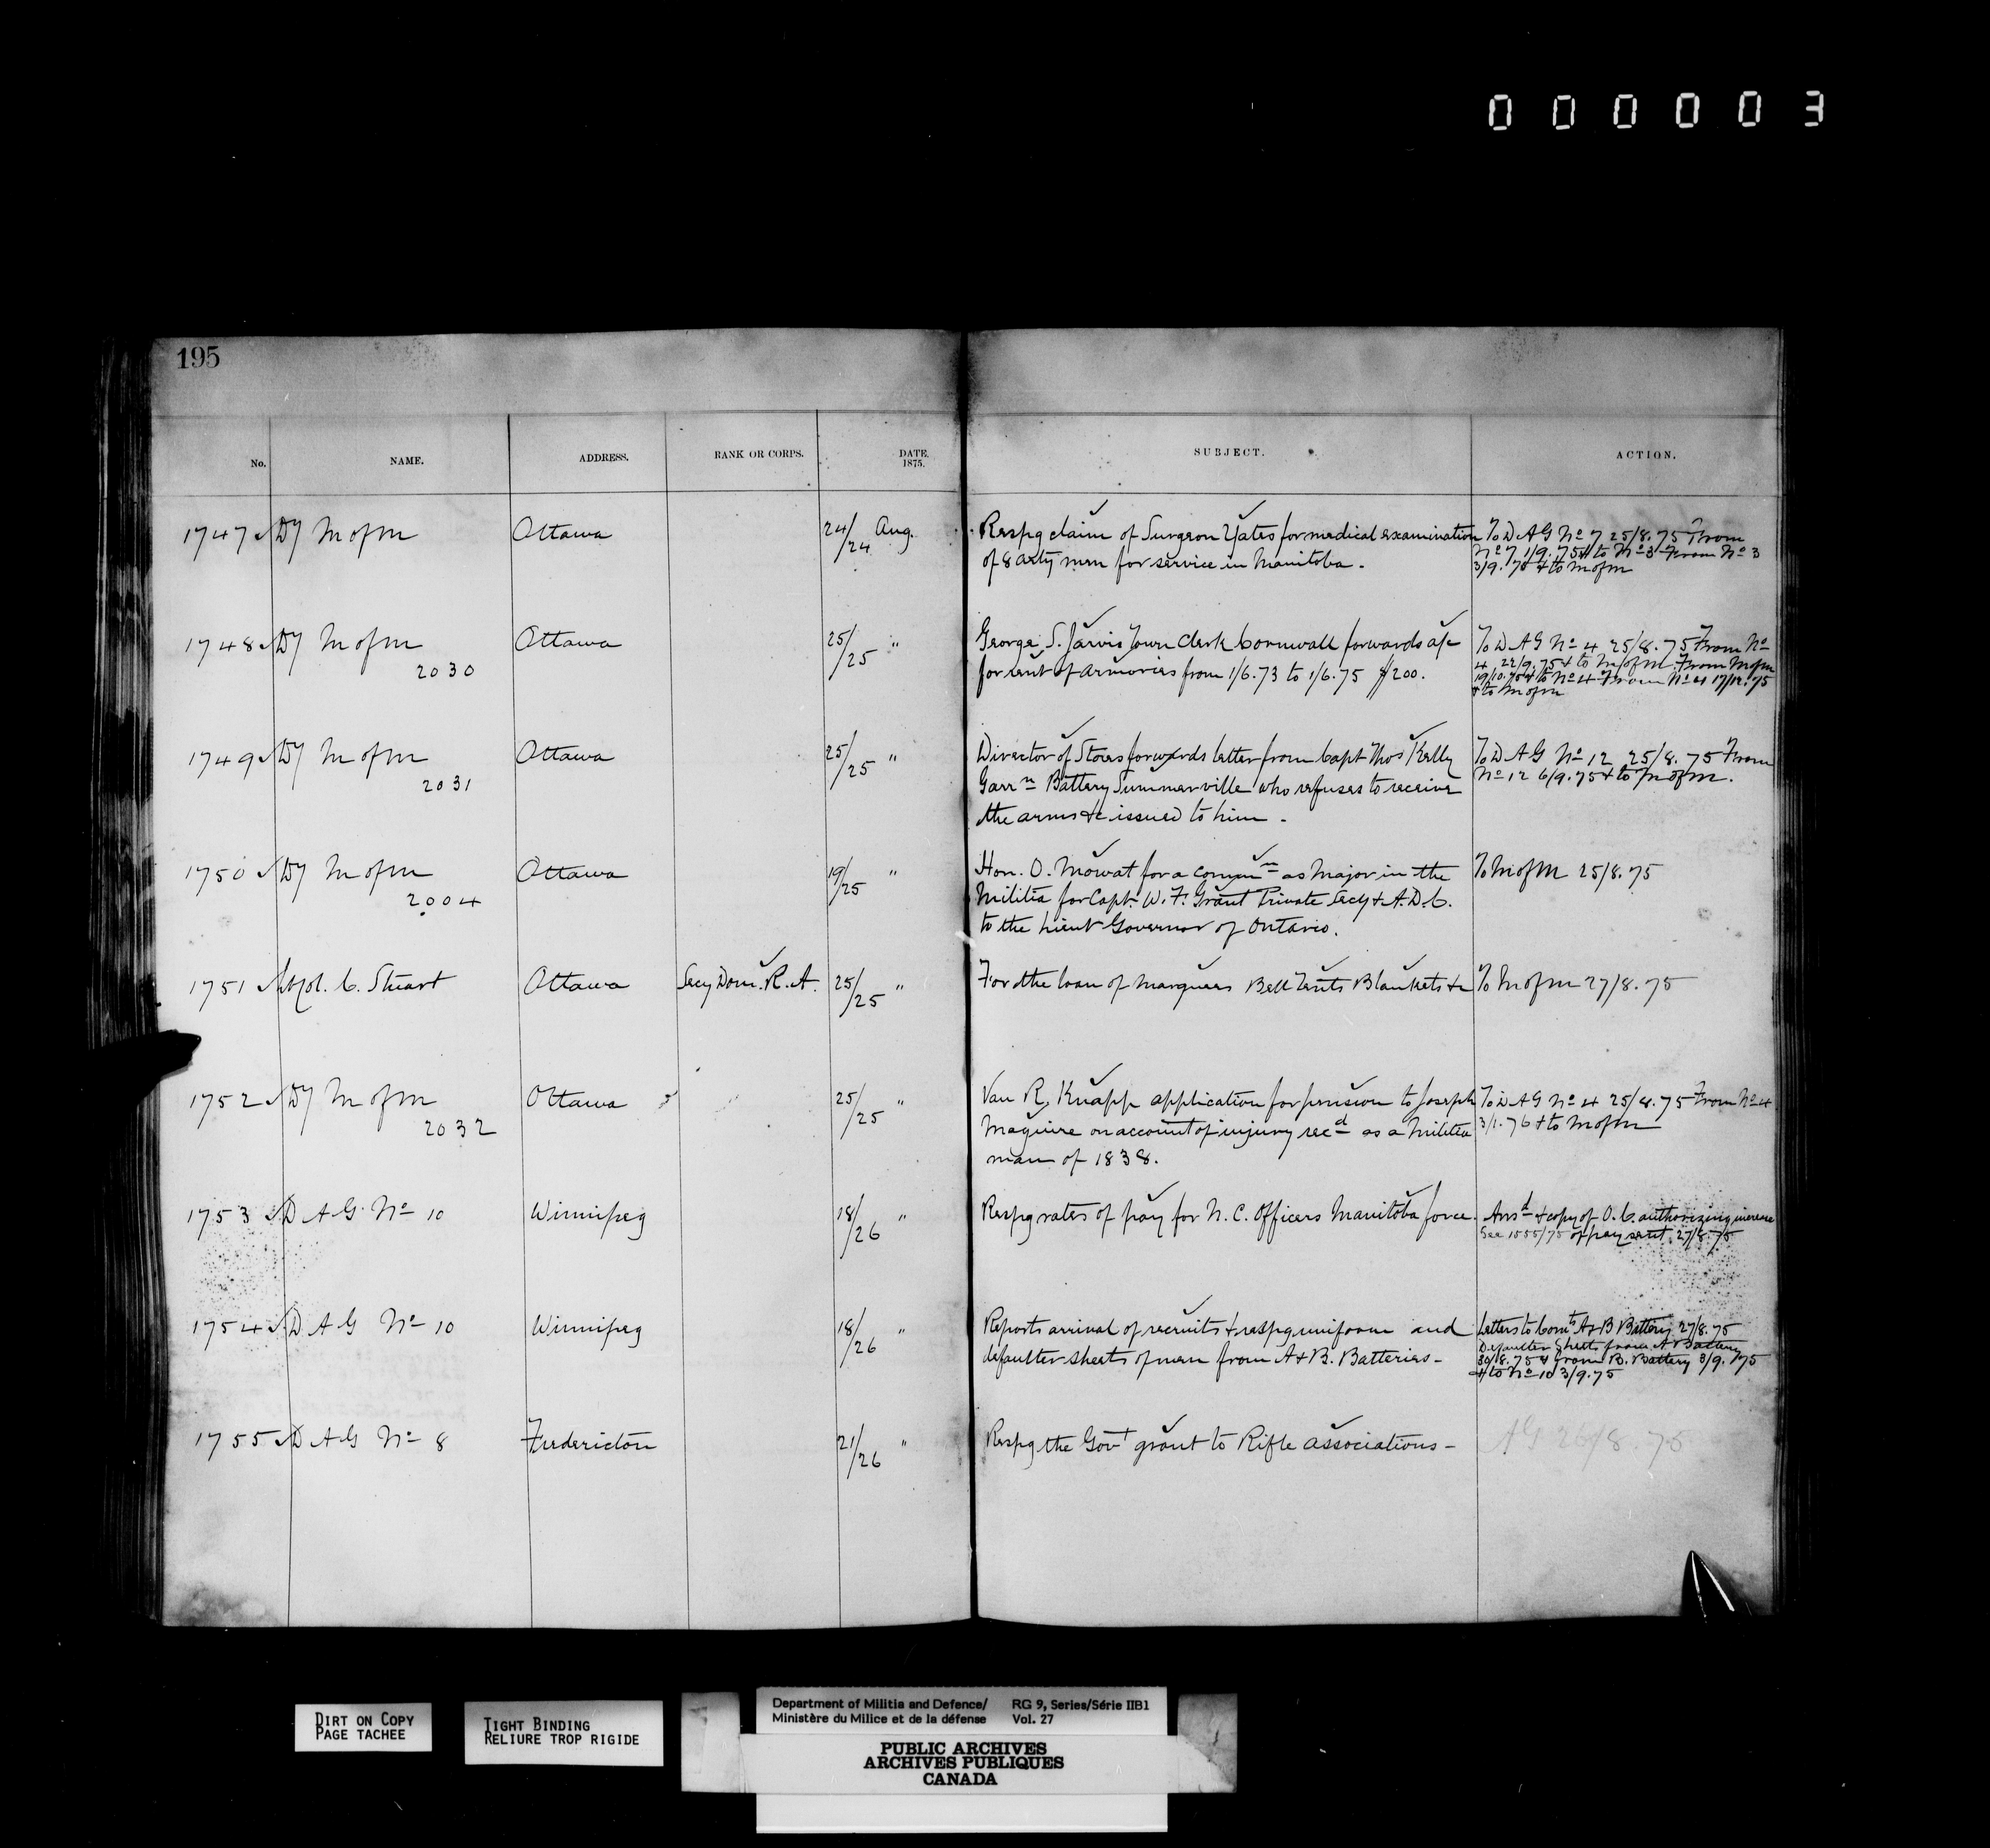 000003
195
No. NAME. ADDRESS. RANK OR CORPS. DATE. 1875. SUBJECT. ACTION.
1747 Dy M of M Ottawa 24/24 Aug. Respg claim of Surgeon Yates for medical examination To D A G No 7 25/8.75 From
of 8 arty men for service in Manitoba. No 7 1/9.75 & to No 3 From No 3
3/9.75 & to M of M
1748 Dy M of M Ottawa 25/25 " George S. Jarvis Town Clerk Cornwall forwards a/c To D A G No 4 25/8.75 From No
2030 for rent of armories from 1/6.73 to 1/6.75 $200. 4 22/9.75 & to M of M. From M of M
19/10.75 & to No 4 From No 4 17/12.75
& to M of M
1749 Dy M of M Ottawa 25/25 " Director of Stores forwards letter from Capt Thos Kelly To D A G No 12 25/8.75 From
2031 Garrn Battery Summerville who refuses to receive No 12 6/9.75 & to M of M.
the arms &c issued to him -
1750 Dy M of M Ottawa 19/25 " Hon. O. Mowat for a commn as Major in the To M of M 25/8.75
2004 Militia for Capt. W. F. Grant Private Secy & A.D.C.
to the Lieut Governor of Ontario.
1751 Lt Col. C. Stuart Ottawa Secy Dom. R. A. 25/25 " For the loan of Marquees Bell Tents Blankets &c To M of M 27/8.75
1752 Dy M of M Ottawa 25/25 " Van R. Knapp application for pension to Joseph To D A G No 4 25/8.75 From No 4
2032 Maguire on account of injury recd as a militia 3/1.76 & to M of M
man of 1838.
1753 D A G No 10 Winnipeg 18/26 " Respg rates of pay for N. C. Officers Manitoba force. Ansd & copy of O. C. authorizing increase
See 1555/75 of pay sent. 27/8.75
1754 D A G No 10 Winnipeg 18/26 " Reports arrival of recruits & respg uniform and Letters to Comts A & B Battery 27/8.75
defaulter sheets of men from A & B. Batteries - Defaulter Sheets from A Battery
30/8.75 & from B. Battery 3/9.75
& to No 10 3/9.75
1755 D A G No 8 Fredericton 21/26 " Respg the Govt grant to Rifle Associations - AG 26/8.75
DIRT ON COPY
PAGE TACHEE
TIGHT BINDING
RELIURE TROP RIGIDE
Department of Militia and Defence/ RG 9, Series/Série IIB1
Ministère du Milice et de la défense Vol. 27
PUBLIC ARCHIVES
ARCHIVES PUBLIQUES
CANADA